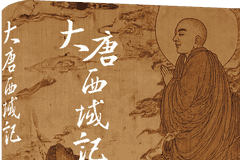 大唐西域記
大唐西域記